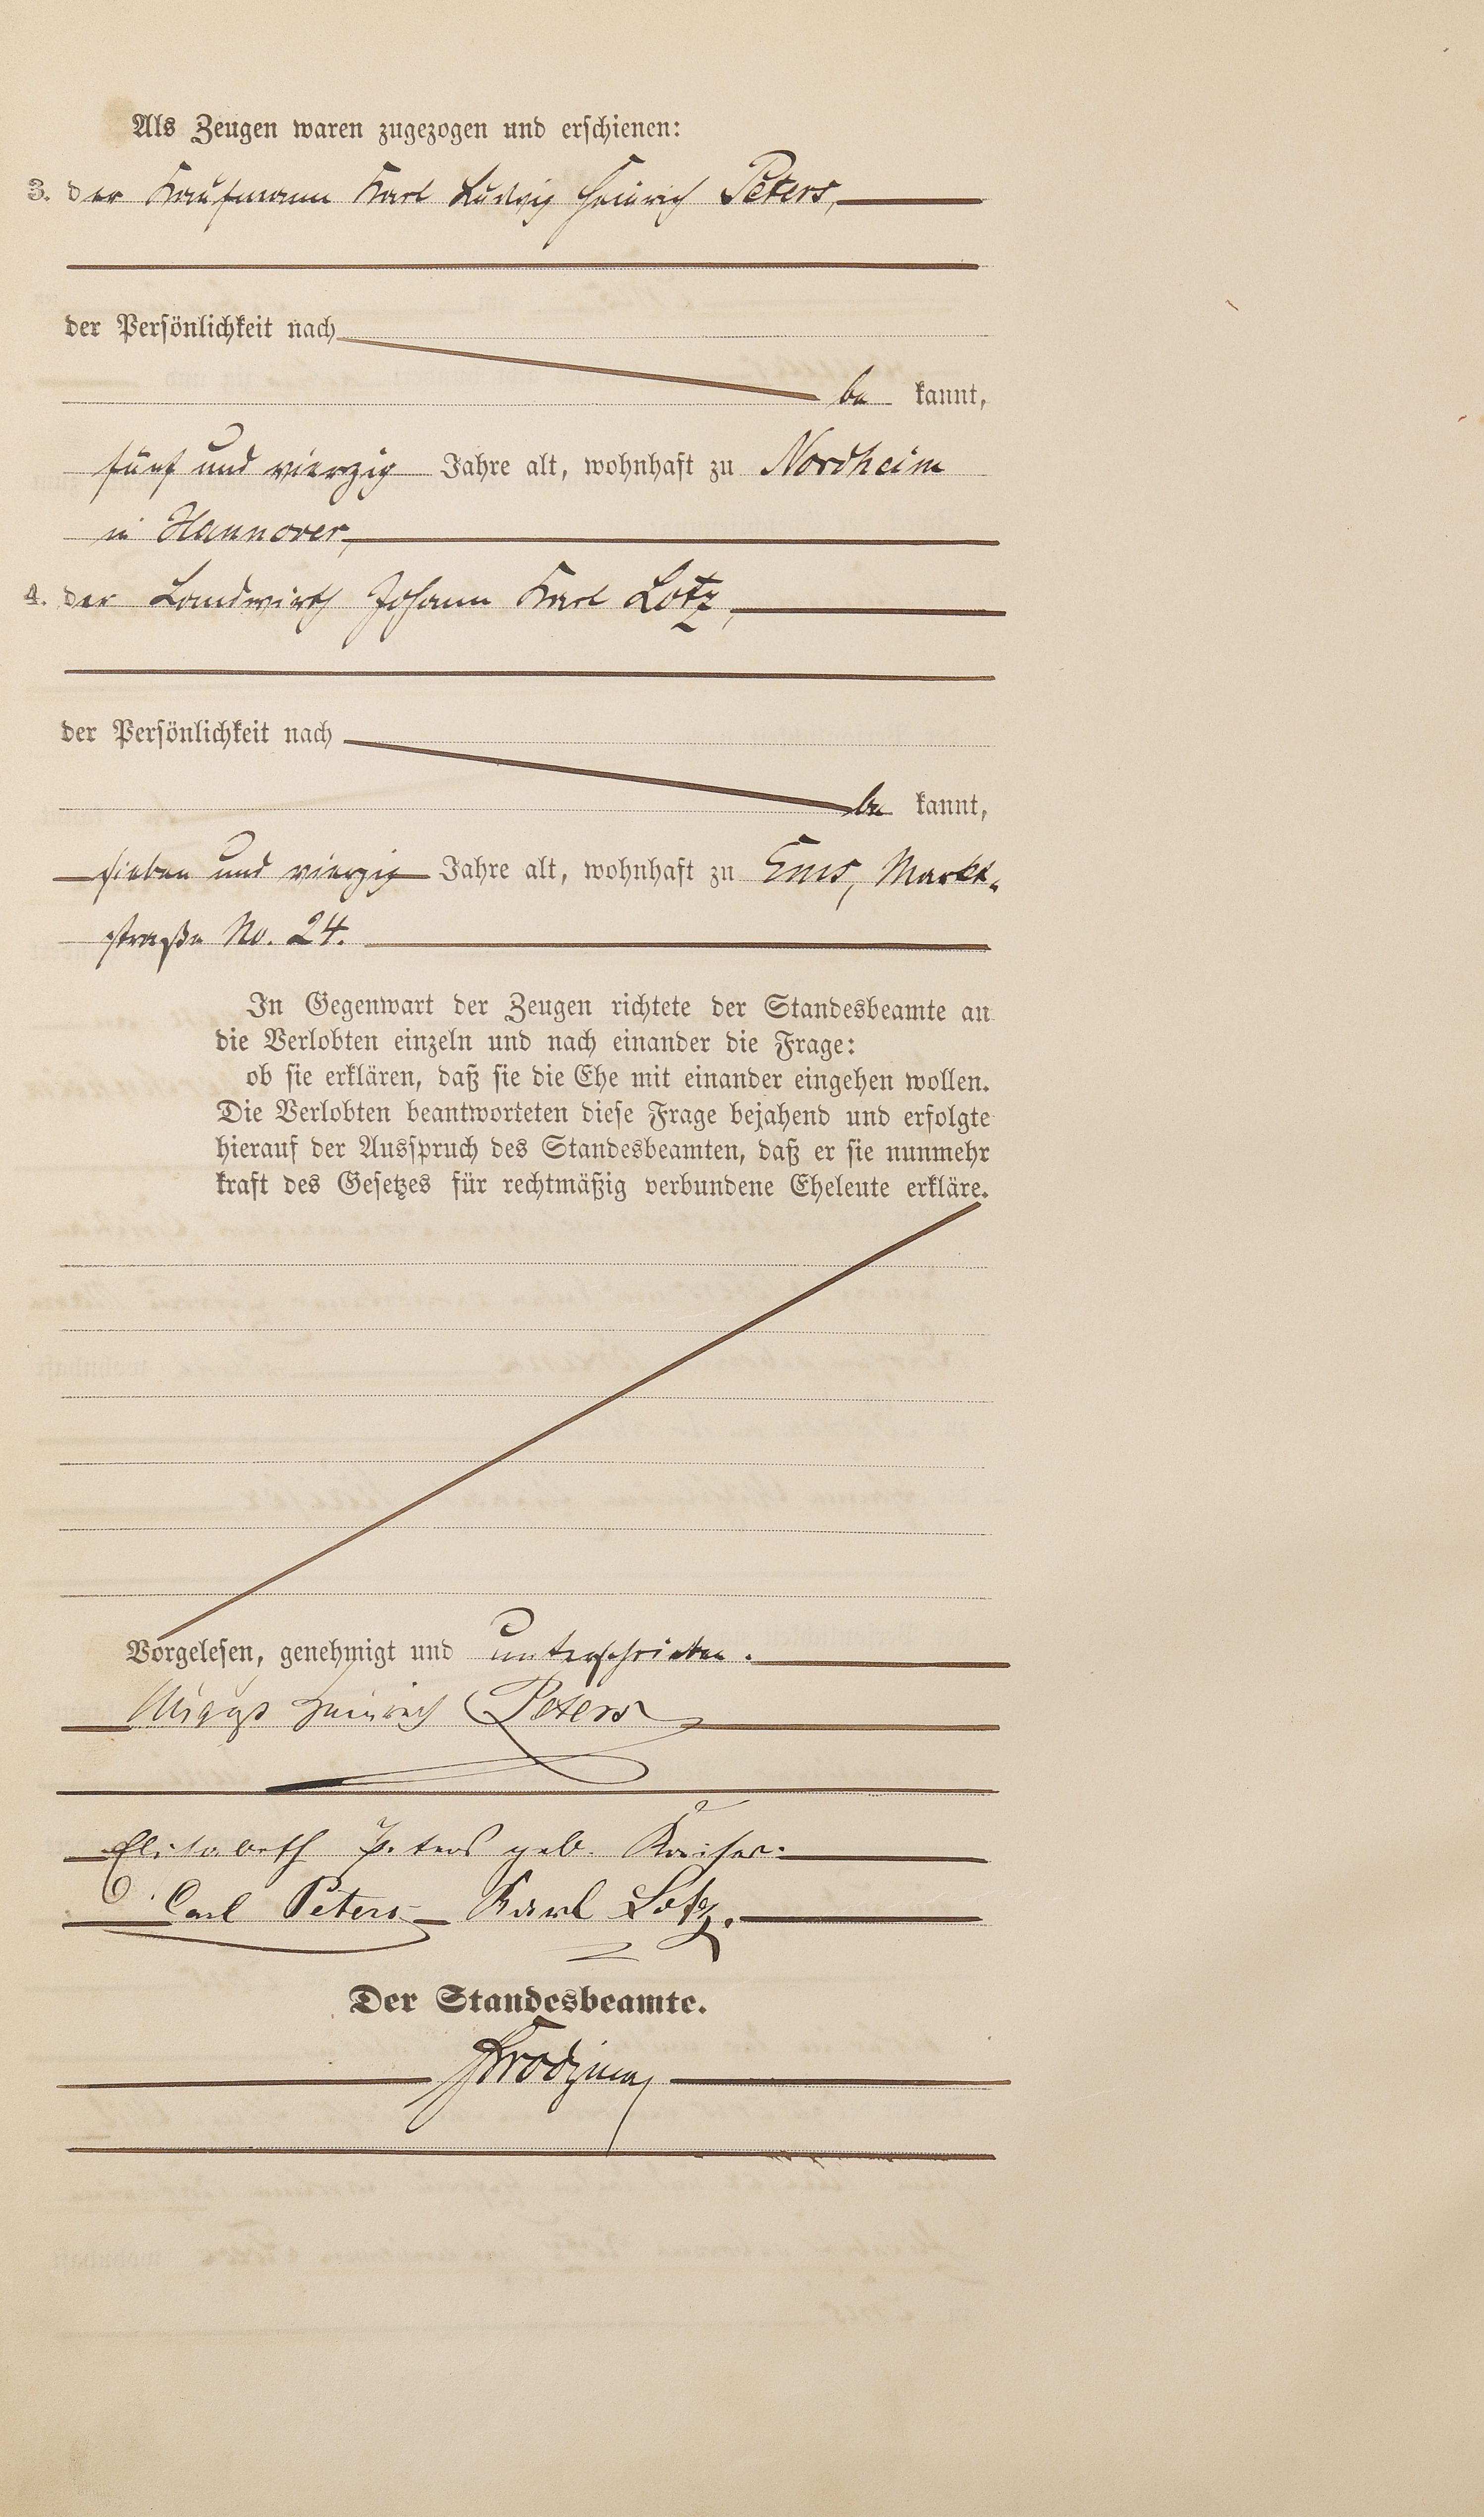 Als Zeugen waren zugezogen und erschienen:
3. der Kaufmann Karl Ludwig Heinrich Peters,
der Persönlichkeit nach
be kannt,
fünf und vierzig Jahre alt, wohnhaft zu Nordheim
in Hannover,
4. der Landwirth Johann Karl Lotz,
der Persönlichkeit nach
be kannt,
sieben und vierzig Jahre alt, wohnhaft zu Ems, Markt-
straße No. 24.
In Gegenwart der Zeugen richtete der Standesbeamte an
die Verlobten einzeln und nach einander die Frage:
ob sie erklären, daß sie die Ehe mit einander eingehen wollen.
Die Verlobten beantworteten diese Frage bejahend und erfolgte
hierauf der Ausspruch des Standesbeamten, daß er sie nunmehr
kraft des Gesetzes für rechtmäßig verbundene Eheleute erkläre.
Vorgelesen, genehmigt und unterschrieben.
Heinrich Peters
Elisabeth Peters geb. Kaiser.
Carl Peters Karl Lotz.
Der Standesbeamte.